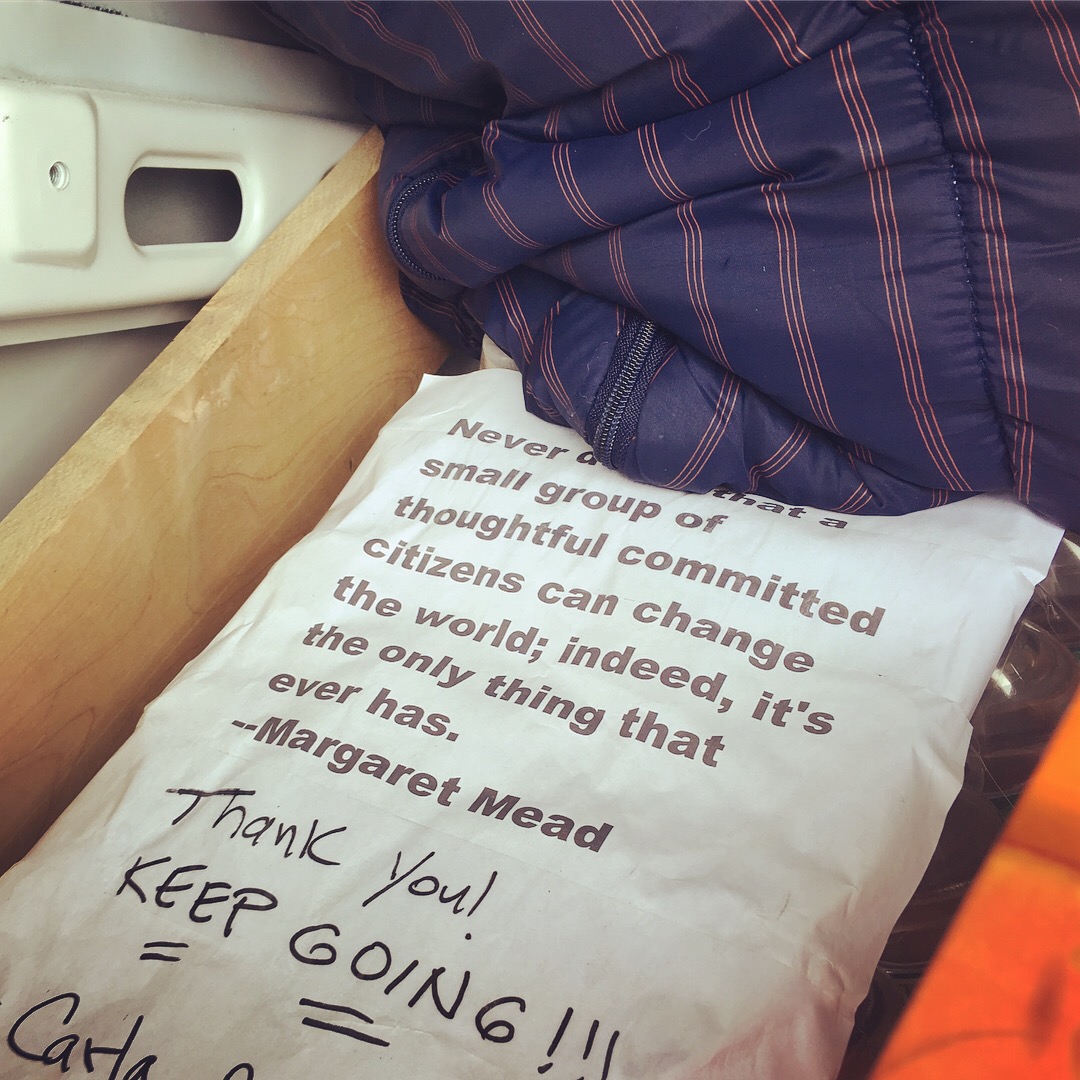 Never that a
small group of
thoughtful committed
citizens can change
the world; indeed, it's
the only thing that
ever has.
--Margaret Mead
Thank You!
KEEP GOING!!!
Carla